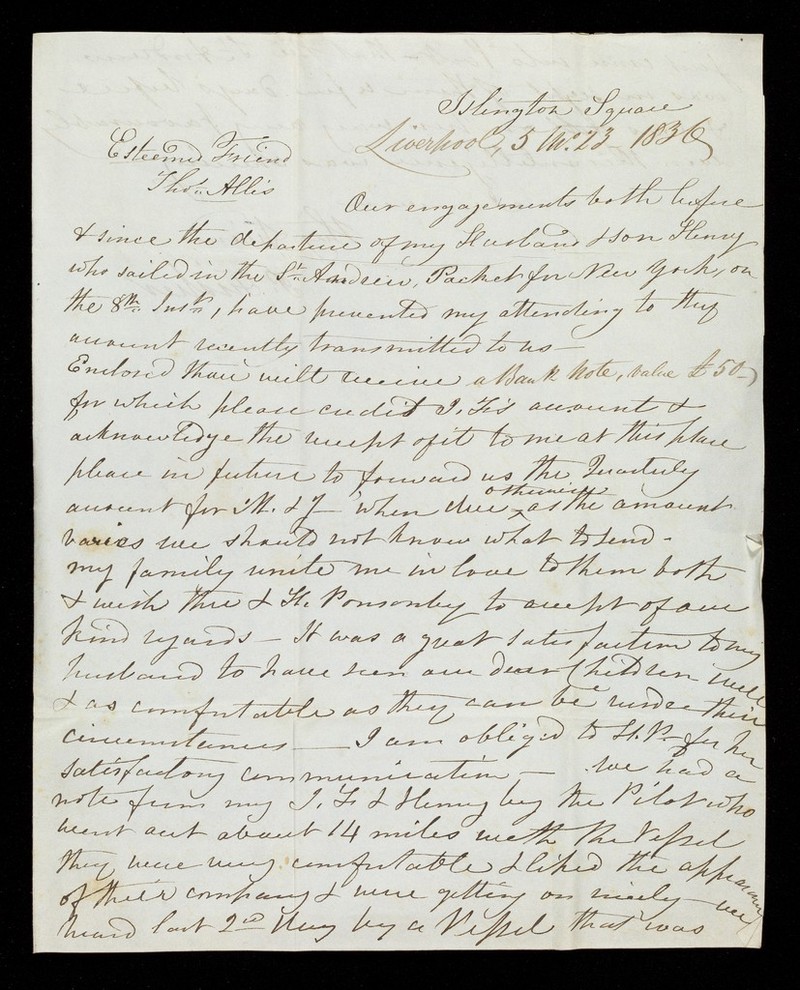 Islington Square
Liverpool, 5 Mo. 23 1836
Esteemed Friend
Thos. Allis
Our engagements both before
& since the departure of my Husband & son Henry
who sailed in the St. Andrew, Packet for New York, on
the 8th Inst., have prevented my attending to thy
account recently transmitted to us
Enclosed thou wilt receive a Bank Note, value £50
for which please credit J. F's account &
acknowledge the receipt of it to me at this place
please in future to forward us the Quarterly
account for M. & J when due otherwise as the amount
varies we should not know what to send -
my family unite me in love to them both
& wish thee & H. Ponsonby to accept of our
kind regards - It was a great satisfaction to my
husband to have seen our dear Children well
& as comfortable as they can be under their
circumstances — I am obliged to H. P. for her
satisfactory communication - we had a
note from my J. F & Henry by the Pilot who
went out about 14 miles with the Vessel
they were very comfortable & liked the appearance
of their company & were getting on nicely - we
heard last 2nd day by a Vessel that was